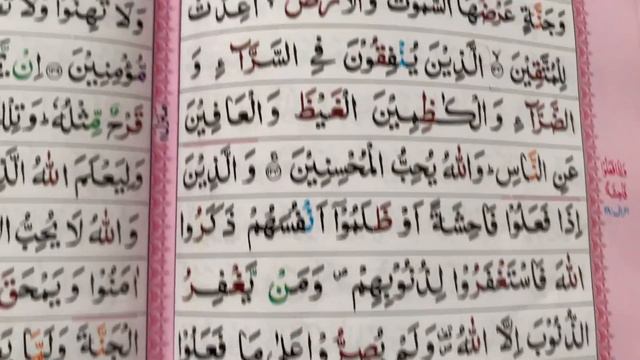 وَجَنَّةٍ عَرْضُهَا السَّمٰوٰتُ وَالْاَرْضُ ۙ اُعِدَّتْ
لِلْمُتَّقِیْنَ ۙ الَّذِیْنَ یُنْفِقُوْنَ فِی السَّرَّآءِ وَ
الضَّرَّآءِ وَالْكٰظِمِیْنَ الْغَیْظَ وَالْعَافِیْنَ
عَنِ النَّاسِ ؕ وَاللّٰهُ یُحِبُّ الْمُحْسِنِیْنَ ۚ وَالَّذِیْنَ
اِذَا فَعَلُوْا فَاحِشَةً اَوْ ظَلَمُوْۤا اَنْفُسَهُمْ ذَكَرُوا
اللّٰهَ فَاسْتَغْفَرُوْا لِذُنُوْبِهِمْ ۪ وَمَنْ یَّغْفِرُ
الذُّنُوْبَ اِلَّا اللّٰهُ ۪ وَلَمْ یُصِرُّوْا عَلٰی مَا فَعَلُوْا
وَلَا تَهِنُوْا وَلَا
مُّؤْمِنِیْنَ اِنْ
قَرْحٌ مِّثْلُهٗ ؕ وَتِلْكَ
وَلِیَعْلَمَ اللّٰهُ
وَاللّٰهُ لَا یُحِبُّ
اٰمَنُوْا وَیَمْحَقَ
الْجَنَّةَ وَلَمَّا